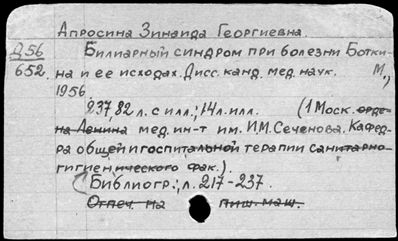 Апросина Зинаида Георгиевна.
Д56 Билиарный синдром при болезни Ботки-
652. на и ее исходах. Дисс. канд. мед. наук. М.,
1956
237, 82 л. с илл.; 14 л. илл. (1 Моск. орде-
на Ленина мед. ин-т им. И.М. Сеченова. Кафед-
ра общей и госпитальной терапии санитарно-
гигиенического фак.).
Библиогр.: л. 217-237.
Отпеч. на пиш. маш.